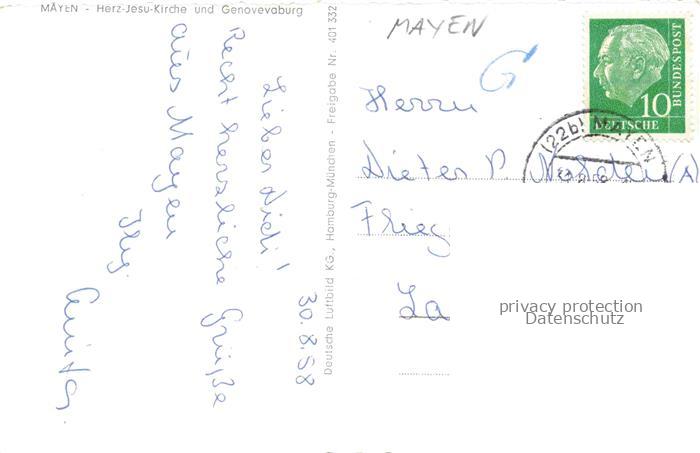 MAYEN - Herz-Jesu-Kirche und Genovevaburg
Lieber Didi!
Recht herzliche Grüße
aus Mayen
30.8.58
Deutsche Luftbild KG., Hamburg-München - Freigabe Nr. 401 332
MAYEN
G
10
DEUTSCHE
BUNDESPOST
(22b) MAYEN
Herrn
Dieter P.
Flieg
La
privacy protection
Datenschutz